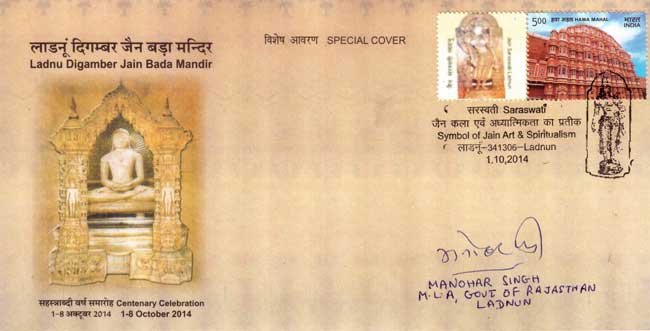 लाडनूं दिगम्बर जैन बड़ा मन्दिर
Ladnu Digamber Jain Bada Mandir
विशेष आवरण SPECIAL COVER
जैन सरस्वती लाडनूं
Jain Saraswati Ladnun
5.00 हवा महल HAWA MAHAL भारत
INDIA
सरस्वती Saraswati
जैन कला एवं अध्यात्मिकता का प्रतीक
Symbol of Jain Art & Spiritualism
लाडनूं-341306-Ladnun
1.10.2014
MANOHAR SINGH
M.L.A, GOVT OF RAJASTHAN
LADNUN
सहस्त्राब्दी वर्ष समारोह Centenary Celebration
1-8 अक्टूबर 2014 1-8 October 2014